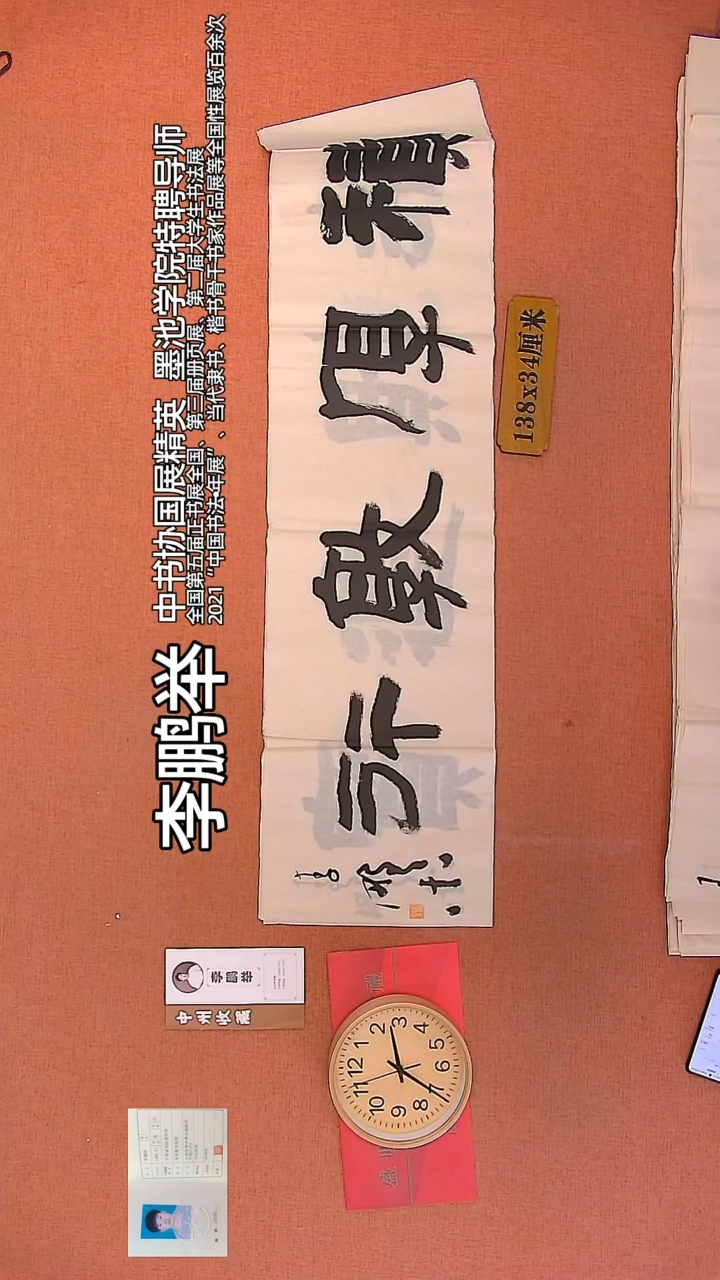 李鹏举
中书协国展精英 墨池学院特聘导师
全国第五届正书展全国、第三届册页展、第二届大学生书法展
2021“中国书法·年展”、当代隶书、楷书骨干书家作品展等全国性展览百余次
積厚敦行
138x34厘米
李鹏举
中州收藏
12
1
2
3
4
5
6
7
8
9
10
11